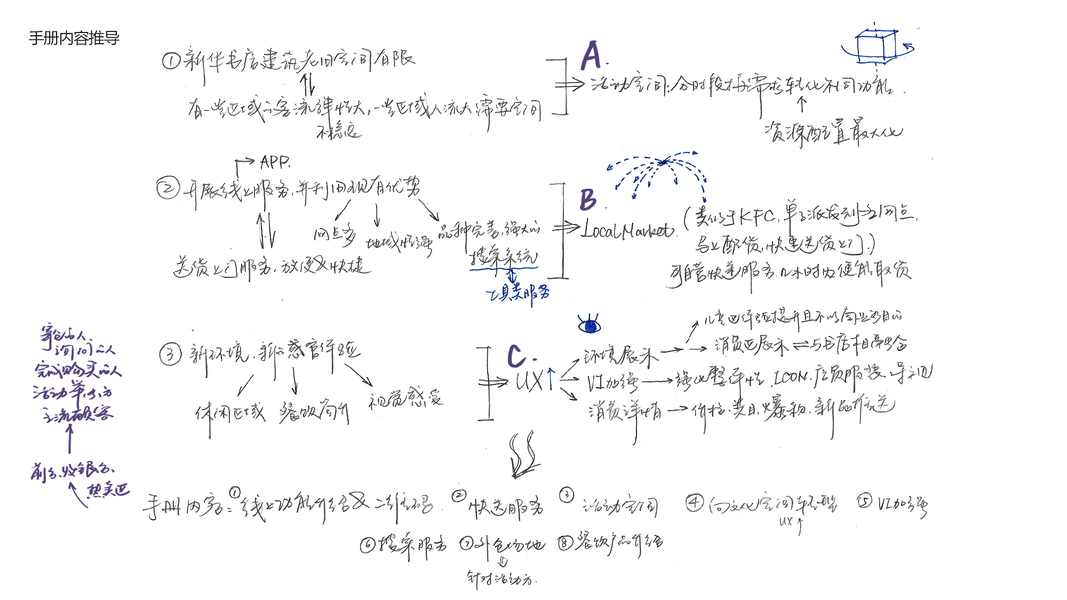 手册内容推导
① 新华书店建筑老旧空间有限
有一些区域 客流弹性大,一些区域人流大需要空间
不稳定
A.
活动空间:分时段按需求转化不同功能.
资源配置最大化
APP.
② 开展线上服务,并利用现有优势
网点多 地域性强 品种完善,强大的
搜索系统
工具类服务
送货上门服务,方便&快捷
B
Local Market. (类似于KFC,单子派发到各网点,
马上配货,快速送货上门.)
可自营快递服务,几小时为便能取货
③ 新环境、新感官体验
休闲区域 餐饮简介 视觉感受
C.
UX↑
环境展示
儿童区体验提升且不以商业为目的
消费区展示 ⇌ 与书店相融合
VI加强 → 强化整体性、ICON、店员服装、导视
消费详情 → 价格、类目、爆款、新品推送
寄包的人
询问的人
完成购买的人
活动举办方
主流顾客
前台、收银台、
热卖区
手册内容: ① 线上功能介绍& 二维码 ② 快送服务 ③ 活动空间 ④ 向文化空间转型 ⑤ VI加强
UX↑
⑥ 搜索服务 ⑦ 外包场地 ⑧ 餐饮产品介绍
针对活动方.